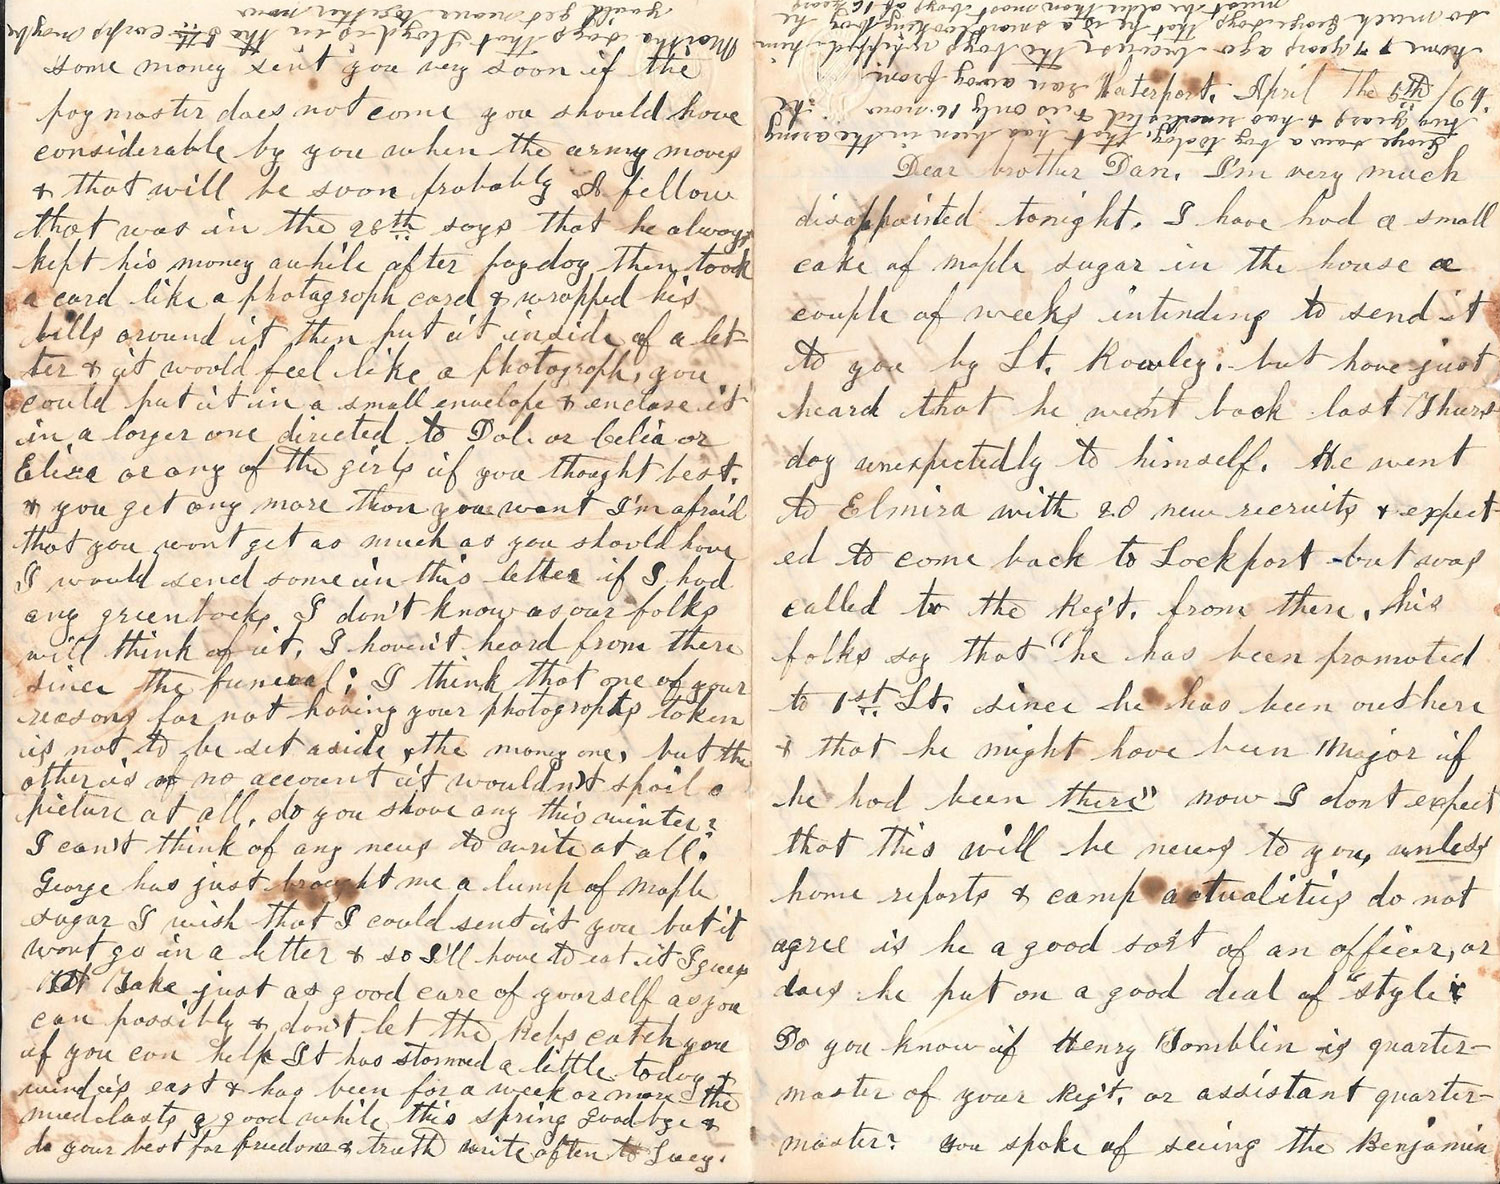 Waterport. April the 9th /64.
Dear brother Dan. I'm very much
disappointed tonight. I have had a small
cake of maple sugar in the house a
couple of weeks intending to send it
to you by Lt. Rowley. but have just
heard that he went back last Thurs-
day unexpectedly to himself. He went
to Elmira with 28 new recruits & expect-
ed to come back to Lockport but was
called to the Regt. from there, his
folks say that "he has been promoted
to 1st Lt. since he has been out here
& that he might have been Major if
he had been there" now I dont expect
that this will be news to you, unless
home reports & camp actualities do not
agree is he a good sort of an officer, or
does he put on a good deal of "style"
Do you know if Henry Tomblin is quarter-
master of your Regt. or assistant quarter-
master? you spoke of seeing the Benjamin
some money sent you very soon if the
paymaster does not come you should have
considerable by you when the army moves
& that will be soon probably A fellow
that was in the 28th says that he always
kept his money awhile after payday then took
a card like a photograph card & wrapped his
bills around it then put it inside of a let-
ter & it would feel like a photograph, you
could put it in a small envelope & enclose it
in a larger one directed to Dol. or Celia or
Eliza or any of the girls if you thought best.
& you get any more than you want I'm afraid
that you wont get as much as you should have
I would send some in this letter if I had
any greenbacks I don't know as our folks
will think of it, I haven't heard from there
since the funeral; I think that one of your
reasons for not having your photographs taken
is not to be set aside, the money one, but the
other is of no account it wouldn't spoil a
picture at all, do you shave any this winter?
I can't think of any news to write at all.
George has just brought me a lump of maple
sugar I wish that I could sent it you but it
wont go in a letter & so I'll have to eat it I guess
Take just as good care of yourself as you
can possibly & don't let the Rebs catch you
if you can help It has stormed a little today &
wind is east & has been for a week or more the
mud lasts a good while this spring Good bye &
do your best for freedom & truth write often to Lucy.
Martha says that Lloyd is in the 8th corps maybe
you'd get some together now
George saw a boy today, that has been in the army
two years & has reenlisted & is only 16 now he
ran away from
home 2 years ago because the boys whipped him
so much George says that he is a smart looking boy he
must be older than most boys of 16 years